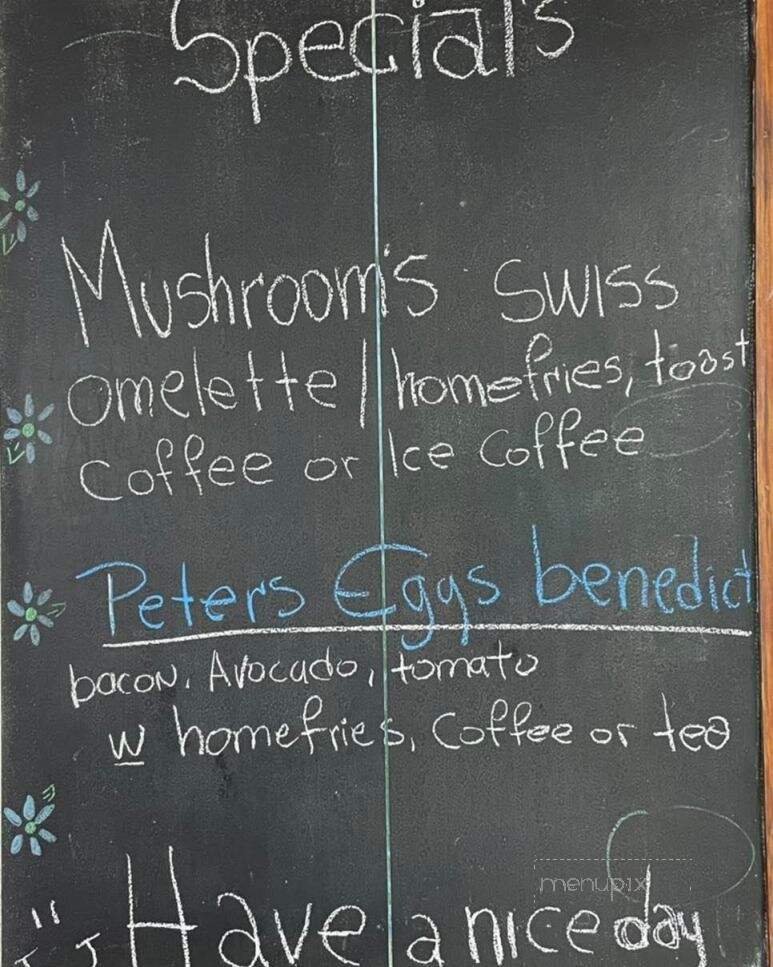 Special's
Mushroom's Swiss
omelette/homefries, toast
Coffee or Ice Coffee
Peters Eggs benedict
bacon, Avocado, tomato
w homefries, Coffee or tea
menupix
Have a nice day